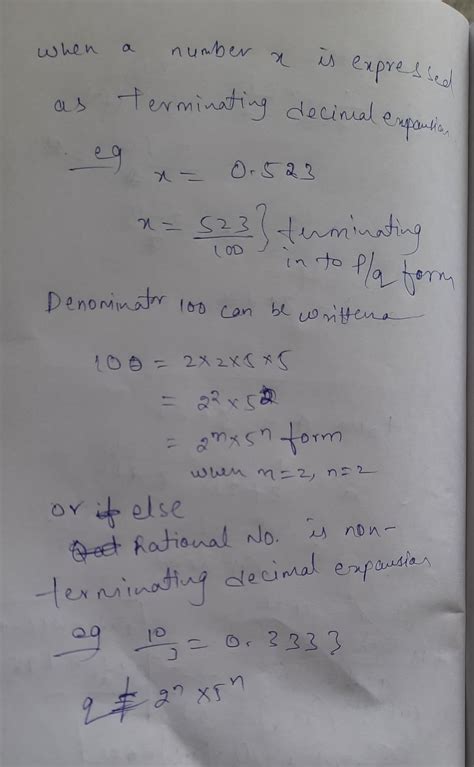 when a number x is expressed
as terminating decimal expansion
eg x = 0.523
x = 523/100 } terminating
in to P/q form
Denominator 100 can be written
100 = 2×2×5×5
= 2² × 5²
= 2ⁿ × 5ⁿ form
when n=2, n=2
or if else
Rational No. is non-
terminating decimal expansion
eg 10/3 = 0.3333
q ≠ 2ⁿ × 5ⁿ